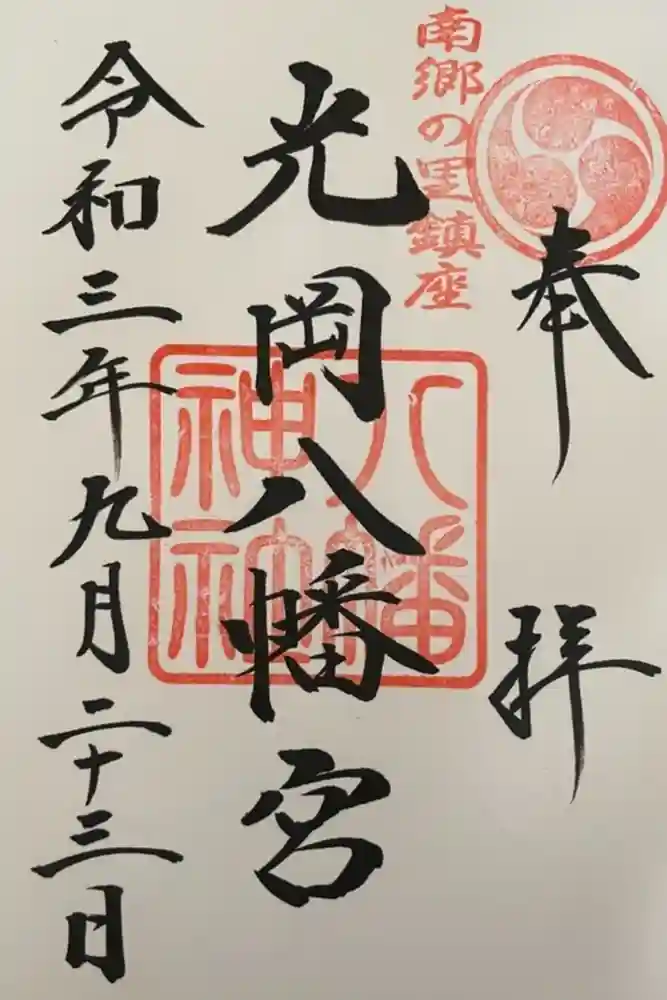 奉拝
南郷の里鎮座
光岡八幡宮
八幡
神社
令和三年九月二十三日